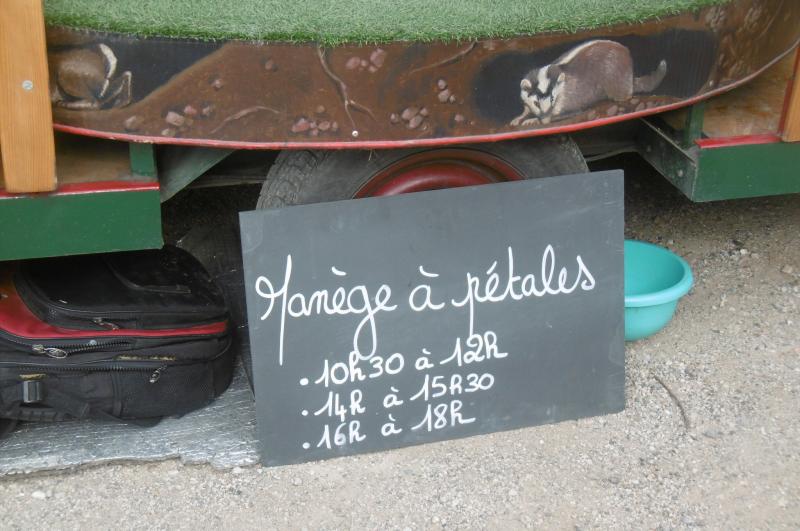 Manège à pétales
• 10h30 à 12h
• 14h à 15h30
• 16h à 18h